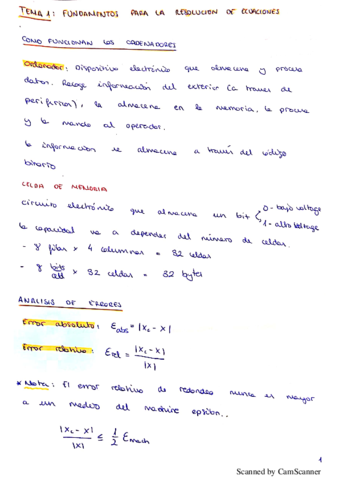 TEMA 1: FUNDAMENTOS PARA LA RESOLUCION DE ECUACIONES
COMO FUNCIONAN LOS ORDENADORES
Ordenador: Dispositivo electrónico que almacena y procesa
datos. Recoge información del exterior (a traves de
perifericos), la almacena en la memoria, la procesa
y la manda al operador.
la informacion se almacena a través del código
binario
CELDA DE MEMORIA
circuito electrónico que almacena un bit 0 - bajo voltage
1 - alto voltage
la capacidad va a depender del número de celdas.
- 8 filas * 4 columnas = 32 celdas
- 8 bits/cell * 32 celdas = 32 bytes
ANALISIS DE ERRORES
Error absoluto: Eabs = |xc - x|
Error relativo: Erel = |xc - x| / |x|
* Nota: El error relativo de redondeo nunca es mayor
a un medio del machine epsilon..
|xc - x| / |x| ≤ 1/2 Emach
1
Scanned by CamScanner